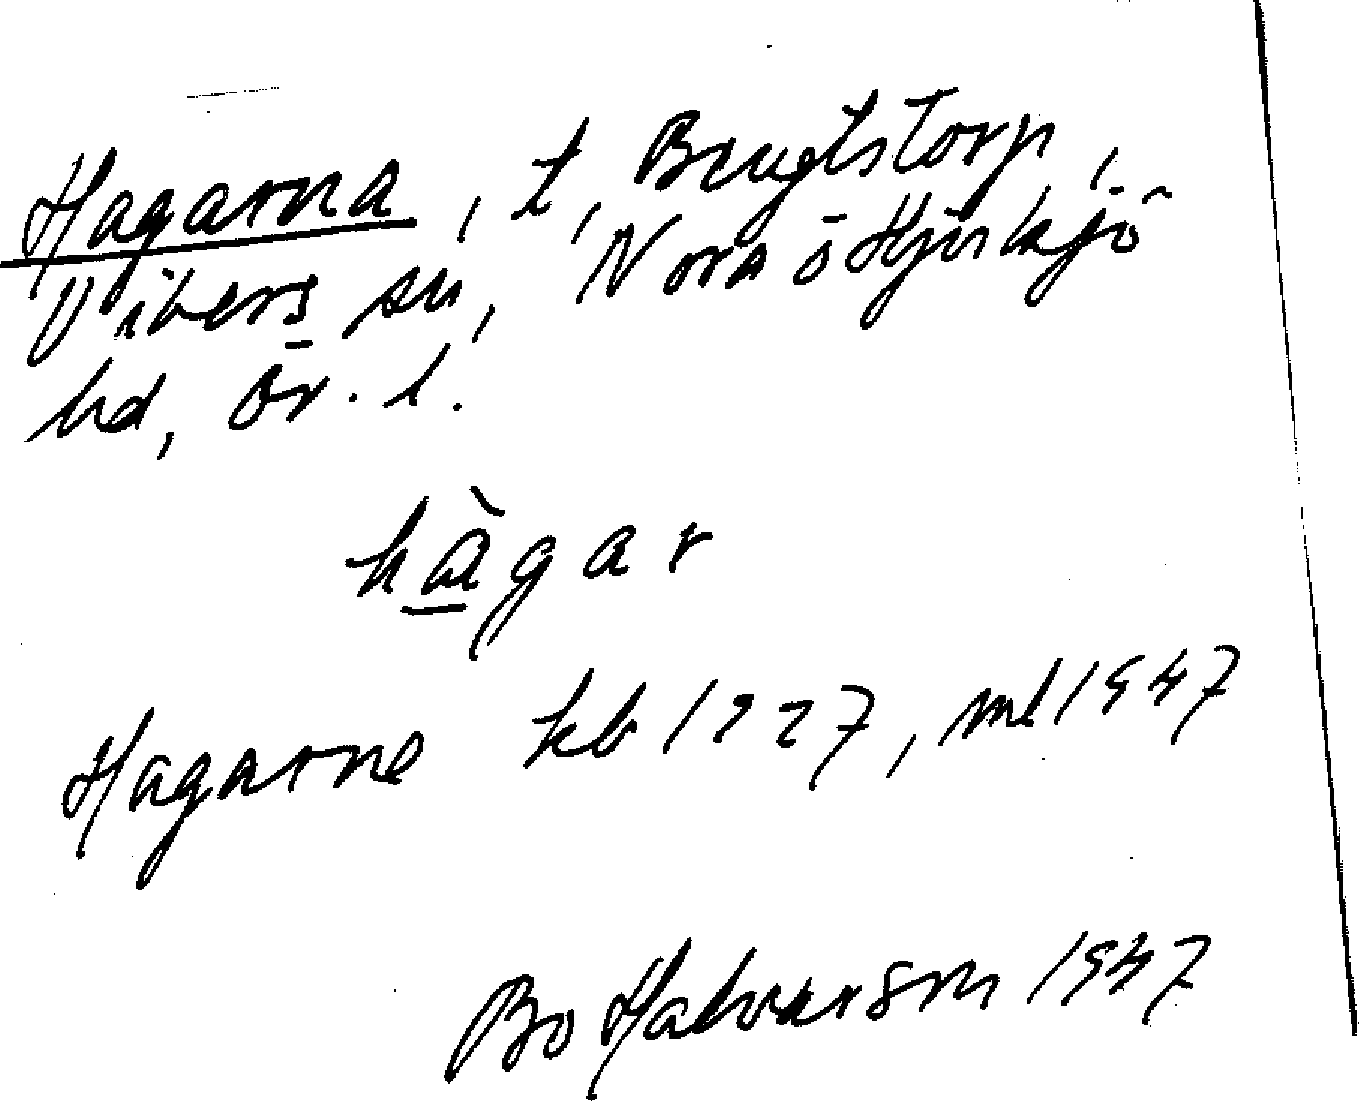 Hagarna, t, Bengtstorp,
Vikers sn, Nora o Hjulsjö
hd, Ör. l.
hàgar
Hagarne kb 1927, ml 1947
Bo Halvarson 1947